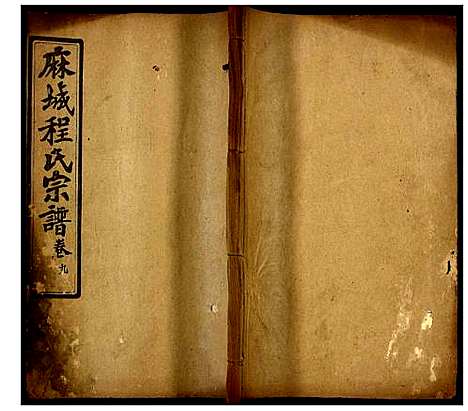 麻城程氏宗譜卷九